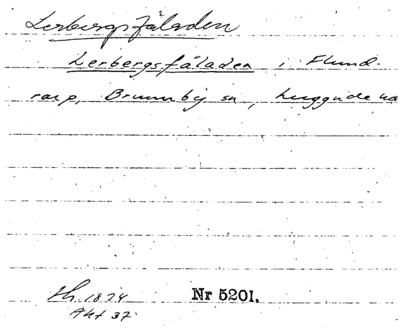 Lerbergsfäladen
Lerbergsfäladen, Flund-
rarp, Brunnby sn, Luggude hd
Lh. 1874
Akt 37
Nr 5201.